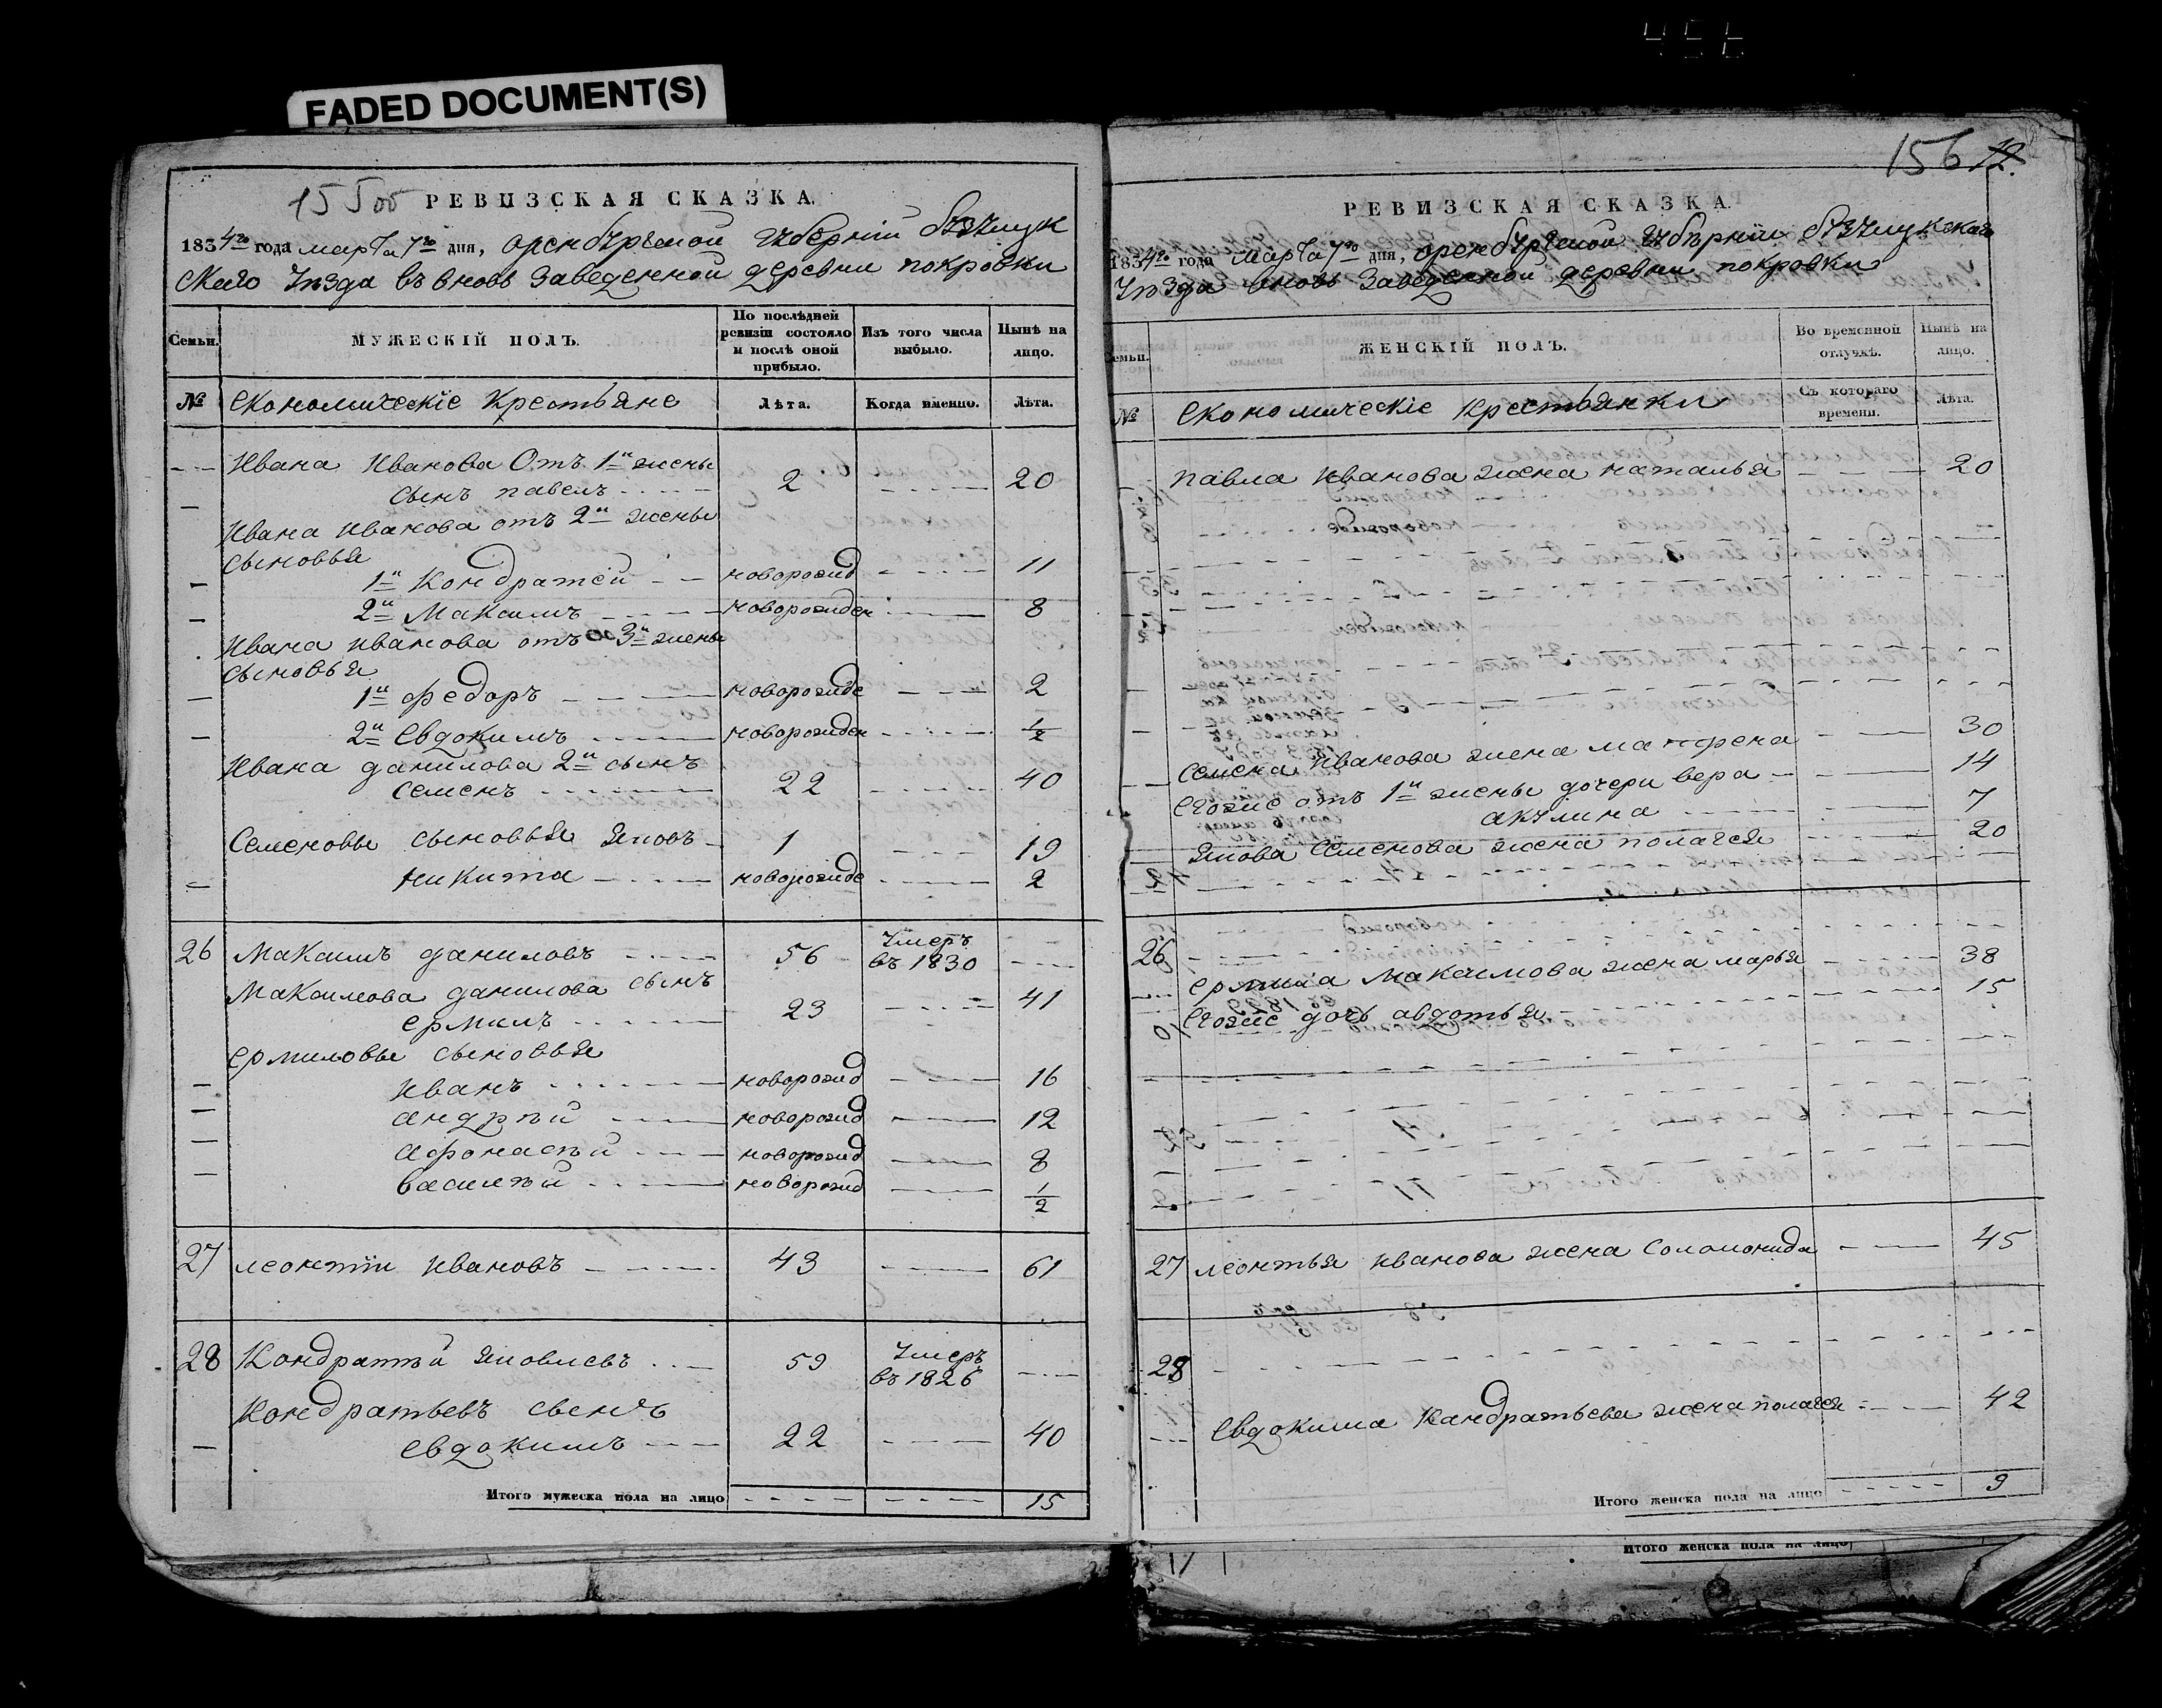 456
FADED DOCUMENT(S)
155об РЕВИЗСКАЯ СКАЗКА.
1834го года марта 7го дня, оренбургской губернии бузулук
ского уезда въ вновь заведенной деревни покровки
Семьи.
МУЖЕСКІЙ ПОЛЪ.
По послѣдней ревизіи состояло и послѣ оной прибыло.
Изъ того числа выбыло.
Нынѣ на лицо.
№ економическіе крестьяне
Лѣта. Когда именно. Лѣта.
Ивана Иванова Отъ 1й жены
сынъ павелъ 2 20
Ивана иванова отъ 2й жены
сыновья
1й Кондратей новорожд 11
2й Максимъ новорожден 8
Ивана иванова отъ 3й жены
сыновья
1й федоръ новорожде 2
2й Евдокимъ новорожден 1/2
Ивана данилова 2й сынъ
семенъ 22 40
Семеновы сыновья яковъ 1 19
никита новорожде 2
26 Максимъ даниловъ 56 умеръ въ 1830
Максимова данилова сынъ
ермилъ 23 41
ермиловы сыновья
иванъ новорожд 16
андрѣй новорожд 12
афонасѣй новорожд 8
василѣй новорожд 1/2
27 леонтіи ивановъ 43 61
28 Кондратѣй яковлевъ 59 умеръ въ 1826
Кондратьевъ сынъ
евдокимъ 22 40
Итого мужеска пола на лицо 15
156 12.
РЕВИЗСКАЯ СКАЗКА.
1834го года марта 7го дня, оренбургской губѣрніи бузулукскаго
уезда вновь заведенной деревни покровки
Семьи.
ЖЕНСКІЙ ПОЛЪ.
Во временной отлучкѣ.
Нынѣ на лицо.
№ економическіе крестьянки
Съ котораго времени.
Лѣта.
павла иванова жена наталья 20
Семена иванова жена матрена 30
Егоже отъ 1й жены дочери вера 14
акулина 7
якова семенова жена полагея 20
26
ермила максимова жена марья 38
Егоже дочь авдотья 15
27 леонтья иванова жена соломонида 45
28
Евдокима Кандратьева жена полагея 42
Итого женска пола на лицо 9
Итого женска пола на лицо